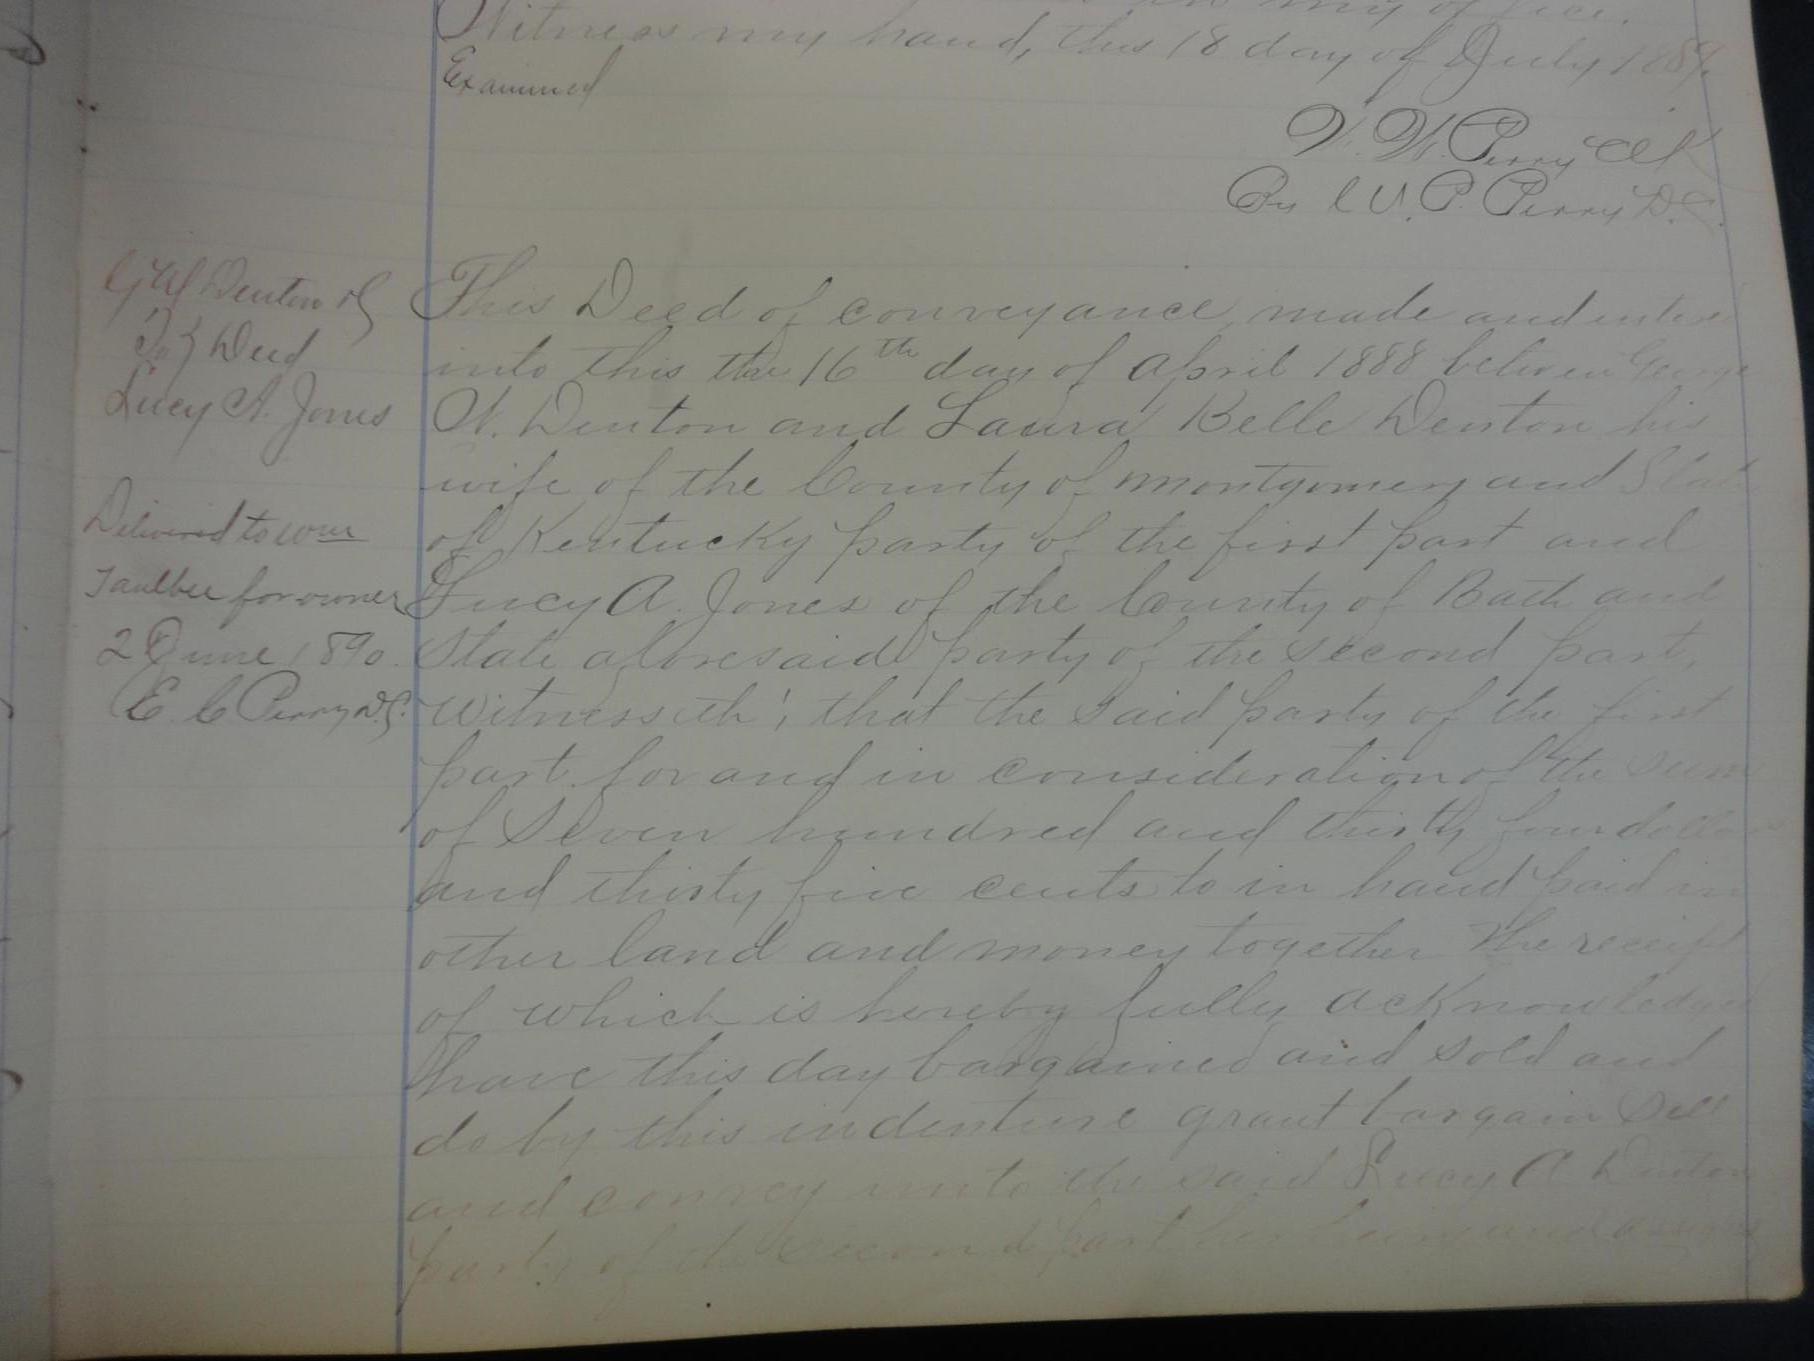 in my office.
Witness my hand, this 18 day of July 1889.
Examined
W. W. Perry Clk
By W. P. Perry D.C.
G W Denton &
To } Deed
Lucy A. Jones
Delivered to
Taulbee for owner
2 June 1890.
E. C Perry D.C.
This Deed of conveyance, made and entered
into this the 16th day of april 1888 between George
W. Denton and Laura Belle Denton his
wife of the County of montgomery and State
of Kentucky party of the first part and
Lucy A. Jones of the County of Bath and
State aforesaid party of the second part,
Witnesseth; that the said party of the first
part for and in consideration of the sum
of Seven hundred and thirty four dollars
and thirty five cents to in hand paid in
other land and money together the receipt
of which is hereby fully acknowledged
have this day bargained and sold and
do by this indenture grant bargain sell
and convey unto the said Lucy A Denton
party of the second part her heirs and assigns